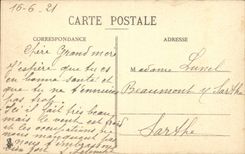 16-6-21
CARTE POSTALE
CORRESPONDANCE
ADRESSE
Chère Grand mère
J'espère que tu es
en bonne santé et
que tu ne t'ennuies
pas trop
Ici il fait très beau
mais le vent est froid
et les occupations ne
nous manquent pas
Madame Lunel
Beaumont s/ Sarthe
Sarthe